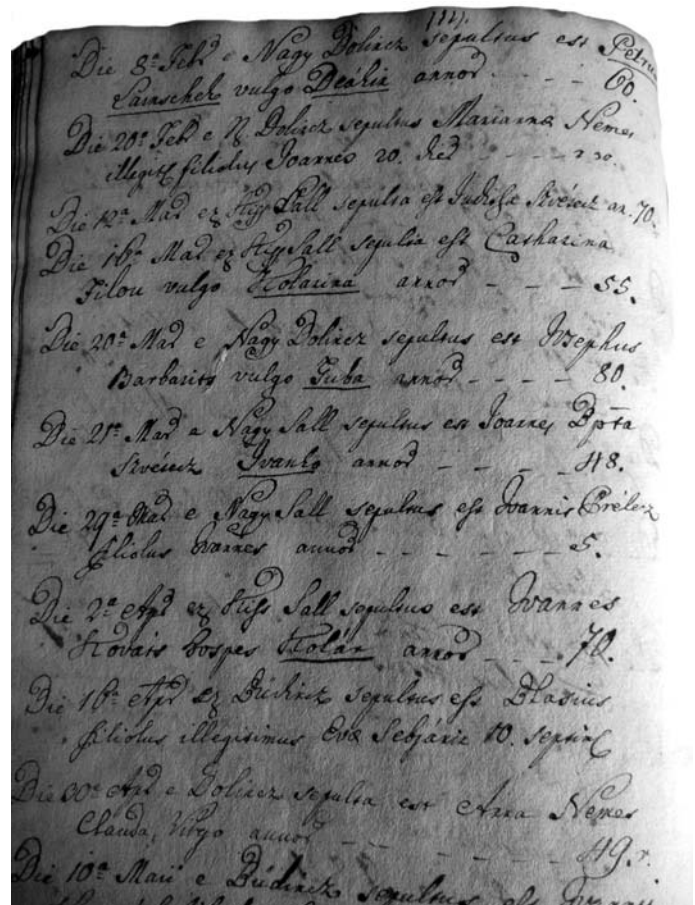 Die 8ª Febr e Nagy Dolincz sepultus est Petrus
Samschek vulgo Deákić annor - - - - 60.
Die 20ª Febr e N Dolincz sepultus Marianna Nemes
illegit filiolus Joannes 20.
Die 12ª Mar ex Kiss Sall sepulta est Juditha an. 70.
Die 16ª Mar ex Kiss Sall sepulta est Catharina
Filou vulgo Kolarina annor - - - 55.
Die 20ª Mar e Nagy Dolincz sepultus est Josephus
Barbarits vulgo Guba annor - - - - 80.
Die 21ª Mar e Nagy Sall sepultus est Joannes Bpta
Ivanko annor - - - - 48.
Die 29ª Mar e Nagy Sall sepultus est Joannis
filiolus Joannes annor - - - - - - - 5.
Die 2ª Apr ex Kiss Sall sepultus est Joannes
Kovats hospes Kolár annor - - - - 70.
Die 16ª Apr ex Büdincz sepultus est Blasius
filiolus illegitimus Evæ 10. septim
Die 30ª Apr e Dolincz sepulta est Anna Nemes
Clauda, Virgo annor - - - - - - - 49.
Die 10ª Maii e Büdincz sepultus est